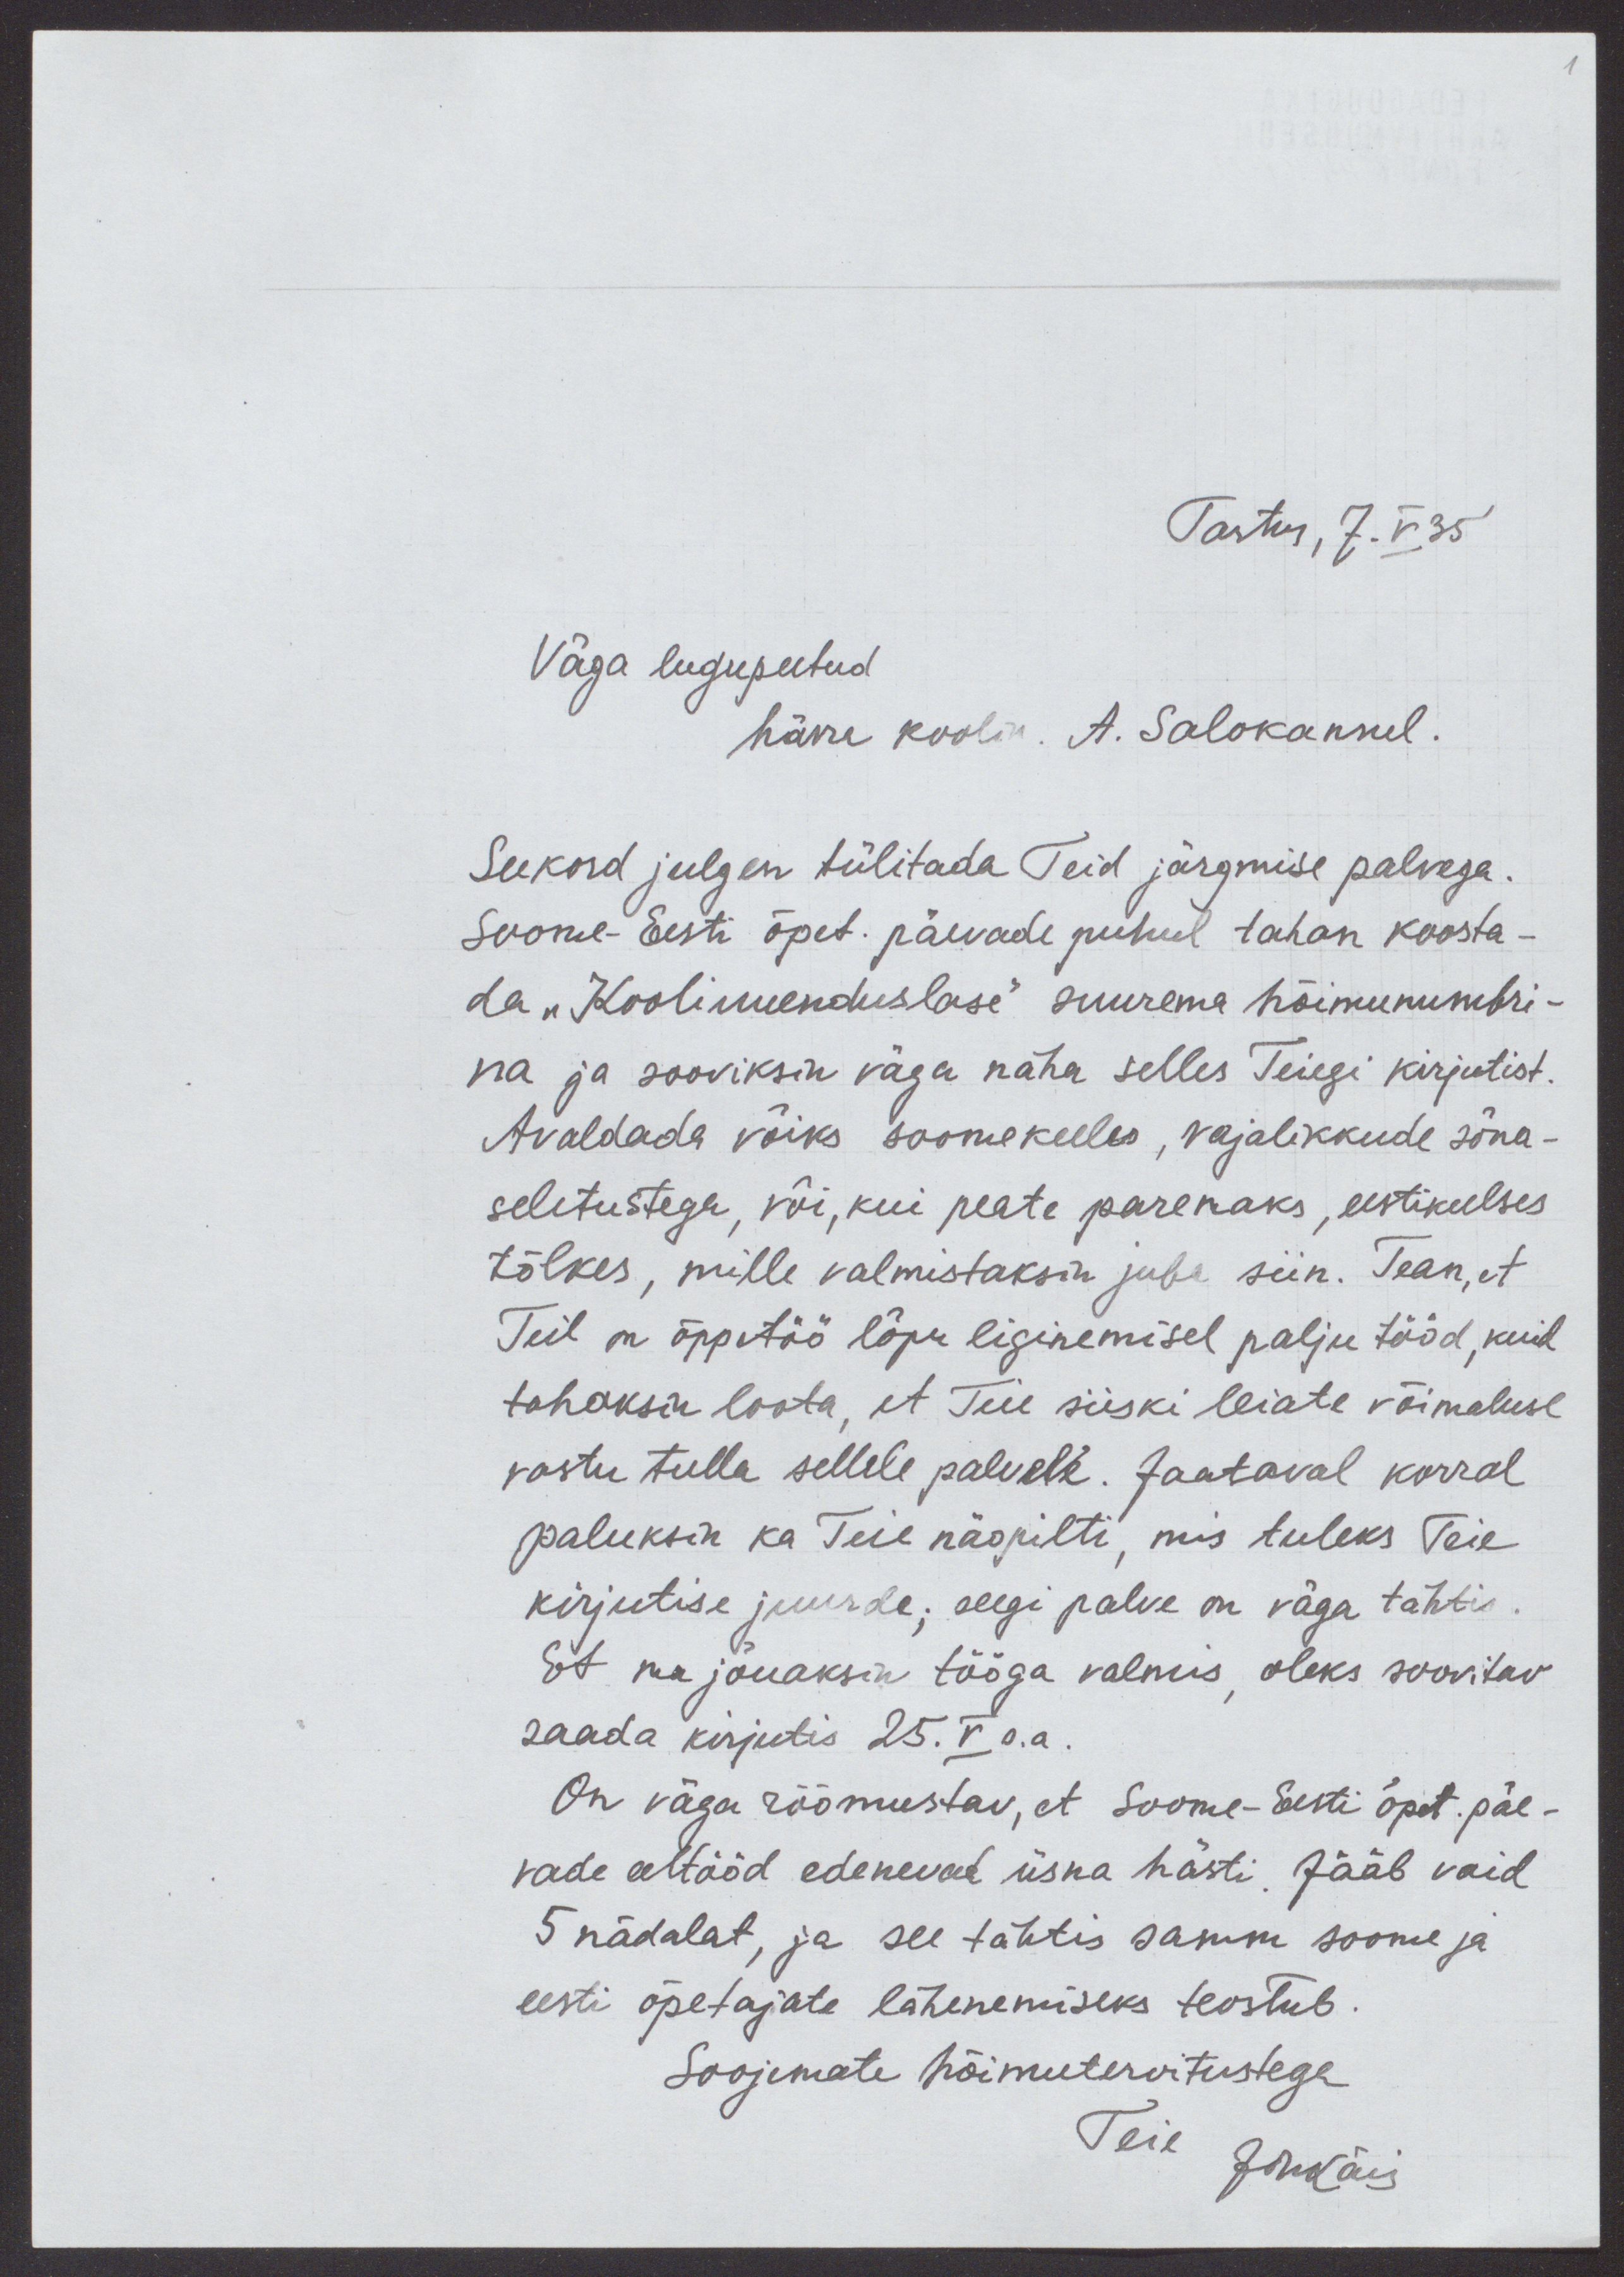 1
Tartus, 7. V 35
Väga lugupeetud
härra koolin. A. Salokannel.
Seekord julgen tülitada Teid järgmise palvega.
Soome-Eesti õpet. päevade puhul tahan koosta-
da „Kooliuuenduslase" suurema hõimunumbri-
na ja sooviksin väga näha selles Teiegi kirjutist.
Avaldada võiks soomekeeles, vajalikkude sõna-
seletustega, või, kui peate paremaks, eestikeelses
tõlkes, mille valmistaksin juba siin. Tean, et
Teil on õppetöö lõpu liginemisel palju tööd, kuid
tahaksin loota, et Teie siiski leiate võimaluse
vastu tulla sellele palvele. Jaataval korral
paluksin ka Teie näopilti, mis tuleks Teie
kirjutise juurde; seegi palve on väga tähtis.
Et ma jõuaksin tööga valmis, oleks soovitav
saada kirjutis 25. V s.a.
On väga rõõmustav, et Soome-Eesti õpet. päe-
vade eeltööd edenevad üsna hästi. Jääb vaid
5 nädalat, ja see tähtis samm soome ja
eesti õpetajate lähenemiseks teostub.
Soojemate hõimutervitustega
Teie
Joh Käis